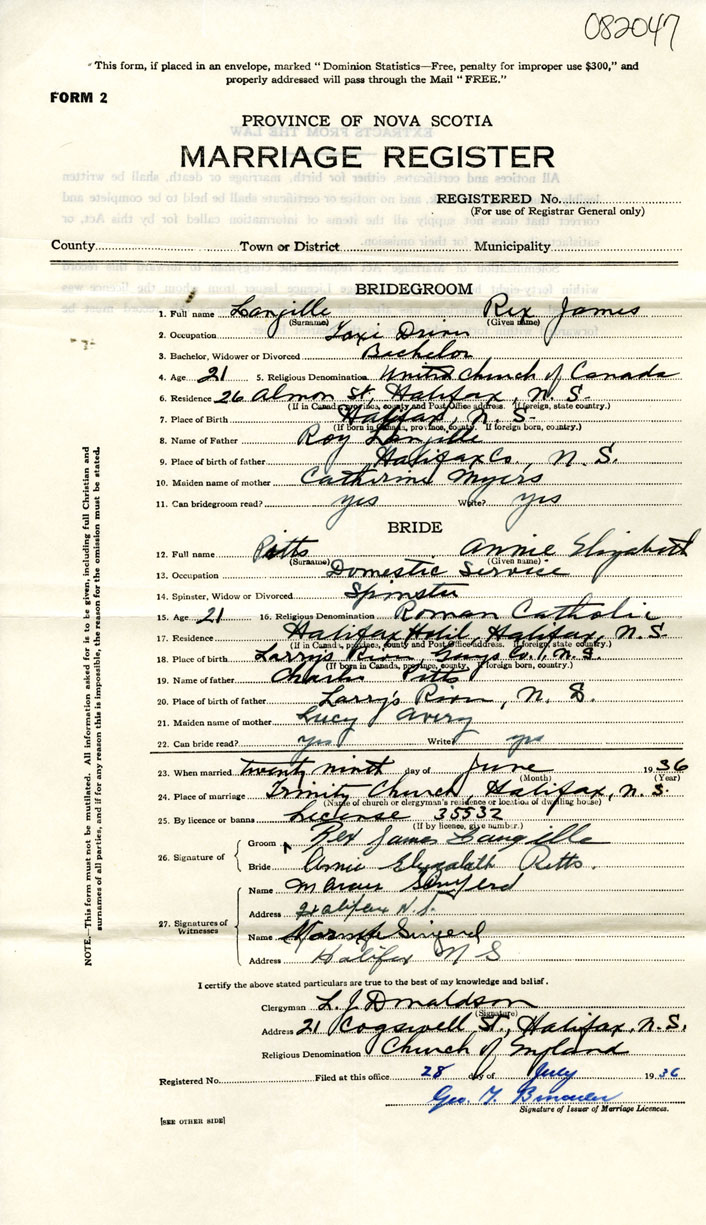 082047
"This form, if placed in an envelope, marked "Dominion Statistics—Free, penalty for improper use $300," and
properly addressed will pass through the Mail "FREE."
FORM 2
PROVINCE OF NOVA SCOTIA
MARRIAGE REGISTER
REGISTERED No.
(For use of Registrar General only)
County Town or District Municipality
BRIDEGROOM
1. Full name Langille Rex James
(Surname) (Given name)
2. Occupation Taxi Driver
3. Bachelor, Widower or Divorced Bachelor
4. Age 21 5. Religious Denomination United Church of Canada
6. Residence 26 Almon St, Halifax, N.S.
(If in Canada, province, county and Post Office address. If foreign, state country.)
7. Place of Birth Halifax, N.S.
(If born in Canada, province, county. If foreign born, country.)
8. Name of Father Roy Langille
9. Place of birth of father Halifax Co., N.S.
10. Maiden name of mother Catherine Myers
11. Can bridegroom read? yes Write? yes
BRIDE
12. Full name Pitts Annie Elizabeth
(Surname) (Given name)
13. Occupation Domestic Service
14. Spinster, Widow or Divorced Spinster
15. Age 21 16. Religious Denomination Roman Catholic
17. Residence Halifax Hotel, Halifax, N.S.
(If in Canada, province, county and Post Office address. If foreign, state country.)
18. Place of birth Larry's River, Guys Co., N.S.
(If born in Canada, province, county. If foreign born, country.)
19. Name of father Charles Pitts
20. Place of birth of father Larry's River, N.S.
21. Maiden name of mother Lucy Avery
22. Can bride read? yes Write? yes
23. When married twenty ninth day of June 1936
(Month) (Year)
24. Place of marriage Trinity Church, Halifax, N.S.
(Name of church or clergyman's residence or location of dwelling house)
25. By licence or banns License 35532
(If by licence, give number.)
26. Signature of Groom Rex James Langille
Bride Annie Elizabeth Pitts.
27. Signatures of Witnesses
Name Marcus
Address Halifax N.S.
Name
Address Halifax N S
I certify the above stated particulars are true to the best of my knowledge and belief.
Clergyman L. J. Donaldson
(Signature)
Address 21 Cogswell St., Halifax, N.S.
Religious Denomination Church of England
Registered No. Filed at this office 28 day of July 1936
Geo. T.
Signature of Issuer of Marriage Licences.
[SEE OTHER SIDE]
NOTE.—This form must not be mutilated. All information asked for is to be given, including full Christian and
surnames of all parties, and if for any reason this is impossible, the reason for the omission must be stated.